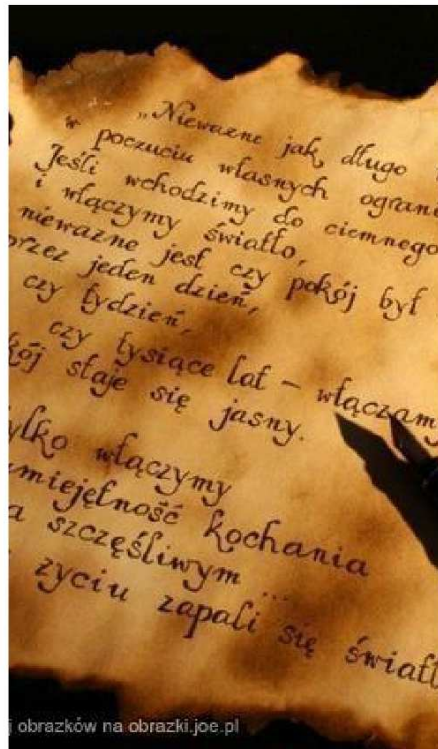 „Nieważne jak długo
w poczuciu własnych ogranic
Jeśli wchodzimy do ciemnego
i włączymy światło,
nieważne jest czy pokój był
przez jeden dzień,
czy tydzień,
czy tysiące lat – włączamy
kój staje się jasny.
ylko włączymy
miejętność kochania
a szczęśliwym ...
życiu zapali się światł
j obrazków na obrazki.joe.pl